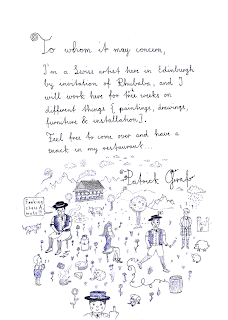 To whom it may concern,
I'm a Swiss artist here in Edinburgh
by invitation of Rhubaba, and I
will work here for three weeks on
different things [ paintings, drawings,
furniture & installation].
Feel free to come over and have a
snack in my restaurant...
Patrick